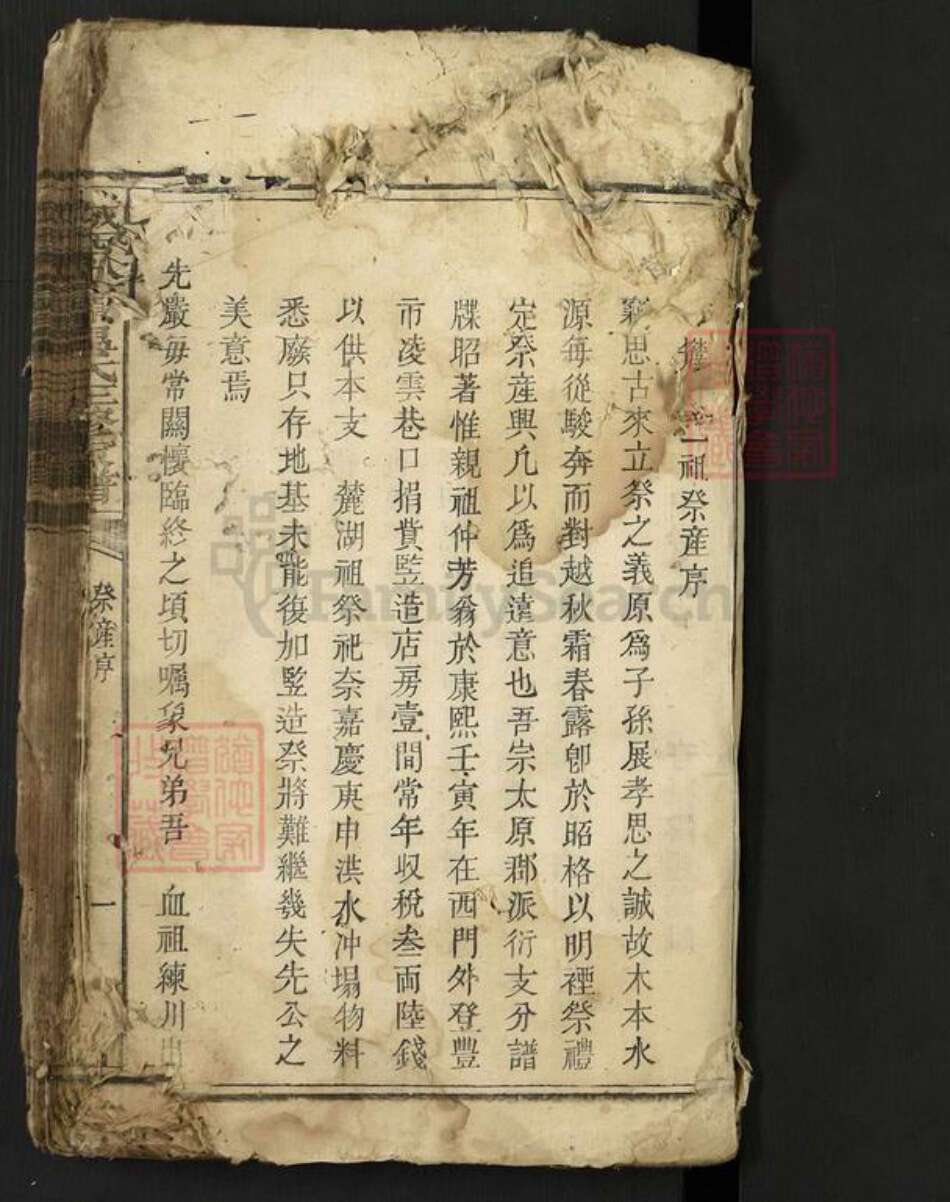 祖祭產序
竊思古來立祭之義原爲子孫展孝思之誠故木本水
源每從駿奔而對越秋霜春露卽於昭格以明禋祭禮
定祭產興凡以爲追遠意也吾宗太原郡派衍支分譜
牒昭著惟親祖仲芳翁於康熙壬寅年在西門外登豐
市凌雲巷口捐貲竪造店房壹間常年収稅叁両陸錢
以供本支 麓湖祖祭祀奈嘉慶庚申洪水冲塌物料
悉廢只存地基未能復加竪造祭將難繼幾失先公之
美意焉
先嚴每常關懷臨終之頃切囑象兄弟吾 血祖練川出
吳氏三修家譜
祭產序
一
FamilySearch